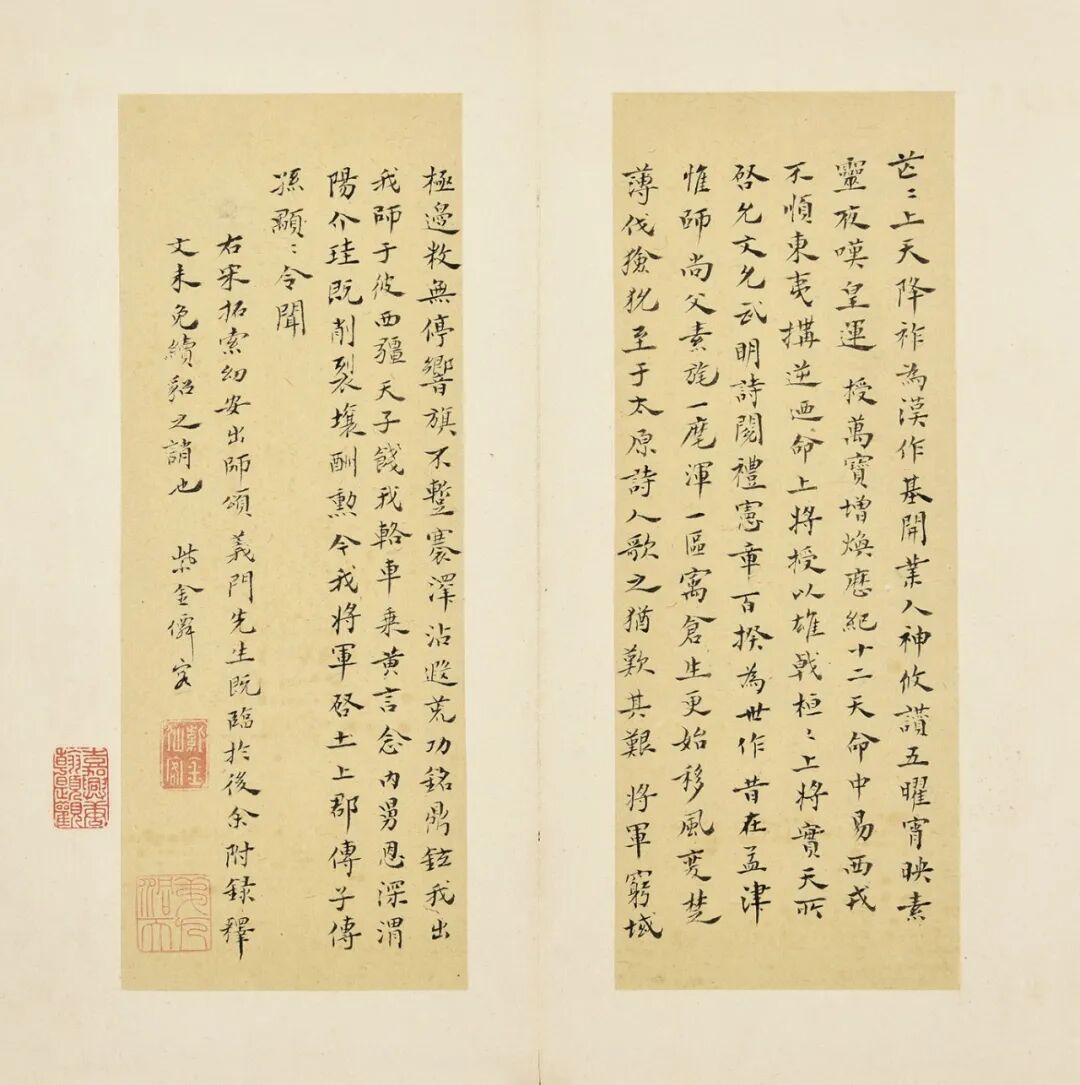 芒〻上天降祚為漢作基開業人神攸讃五曜宵映素
靈夜嘆皇運　授萬寶增煥歷紀十二天命中易西戎
不順東夷搆逆迺命上將授以雄戟桓〻上將實天所
啓允文允武明詩閱禮憲章百揆為世作昔在孟津
惟師尚父素旄一麾渾一區㝢倉生更始移風變楚
薄伐獫狁至于太原詩人歌之猶歎其艱　將軍窮域
極邊敇無停響旗不蹔褰澤沾遐荒功銘鼎鉉我出
我師于彼西疆天子餞我輅車乘黃言念內舅恩深渭
陽介珪既削裂壤酬勲今我將軍啓土上郡傳子傳
孫顯〻令聞
右宋拓索幼安出師頌義門先生既臨於後余附錄釋
文未免續貂之誚也　紫金僊客
紫金仙客